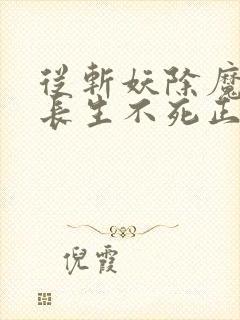 從斬妖除魔
長生不死正
倪霞